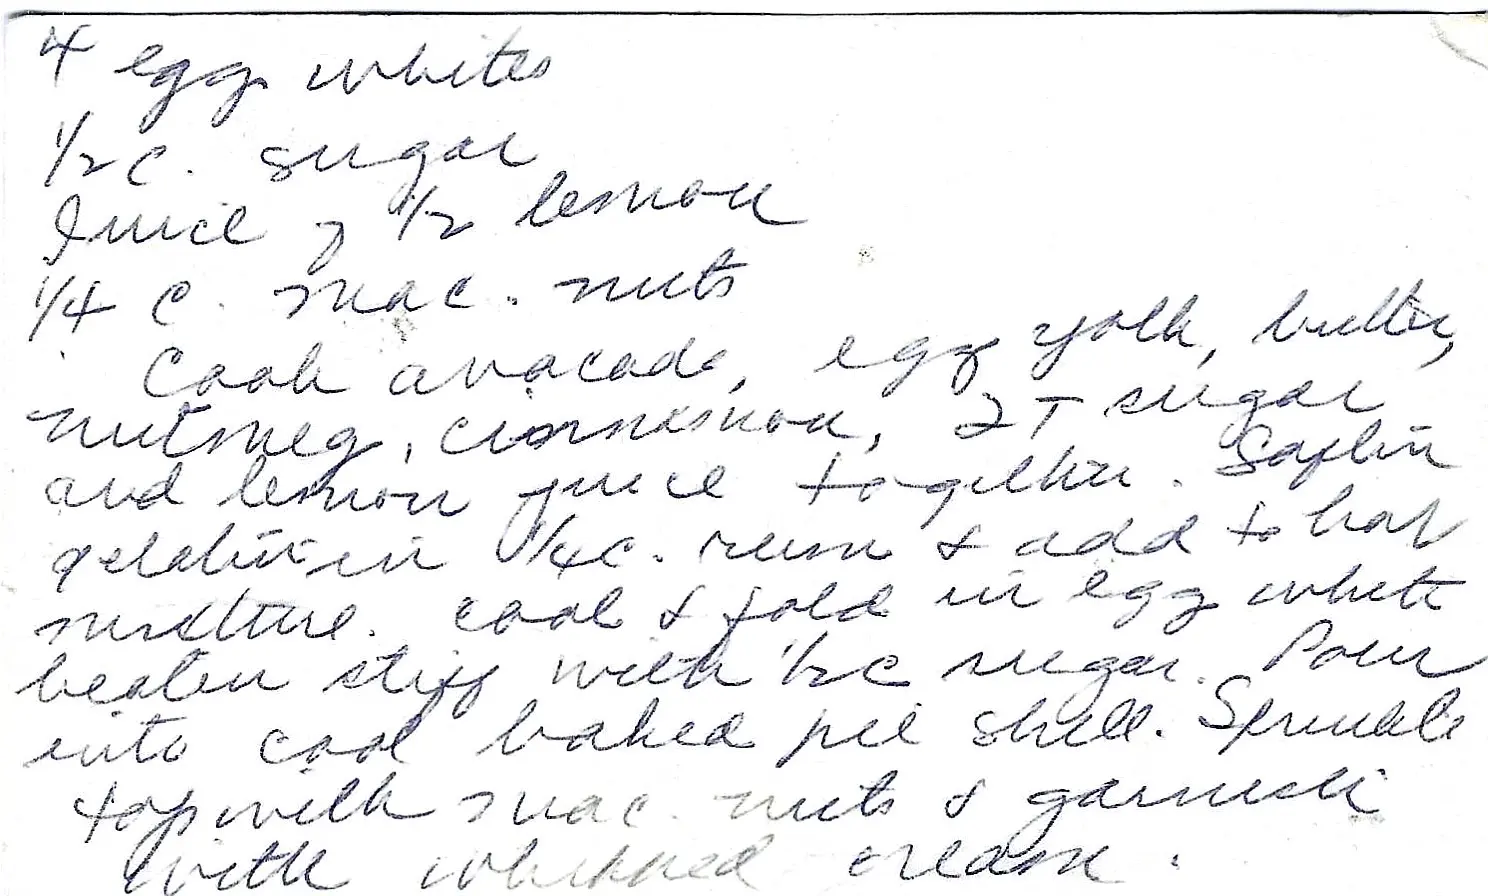 4 egg whites
1/2 c. sugar
Juice of 1/2 lemon
1/4 c. mac. nuts
Cook avocado, egg yolk, butter,
nutmeg, cinnamon, 2 T sugar
and lemon juice together. Soften
gelatin in 1/4 c. rum & add to hot
mixture. Cool & fold in egg white
beaten stiff with 1/2 c sugar. Pour
into cool baked pie shell. Sprinkle
top with mac. nuts & garnish
with whipped cream.